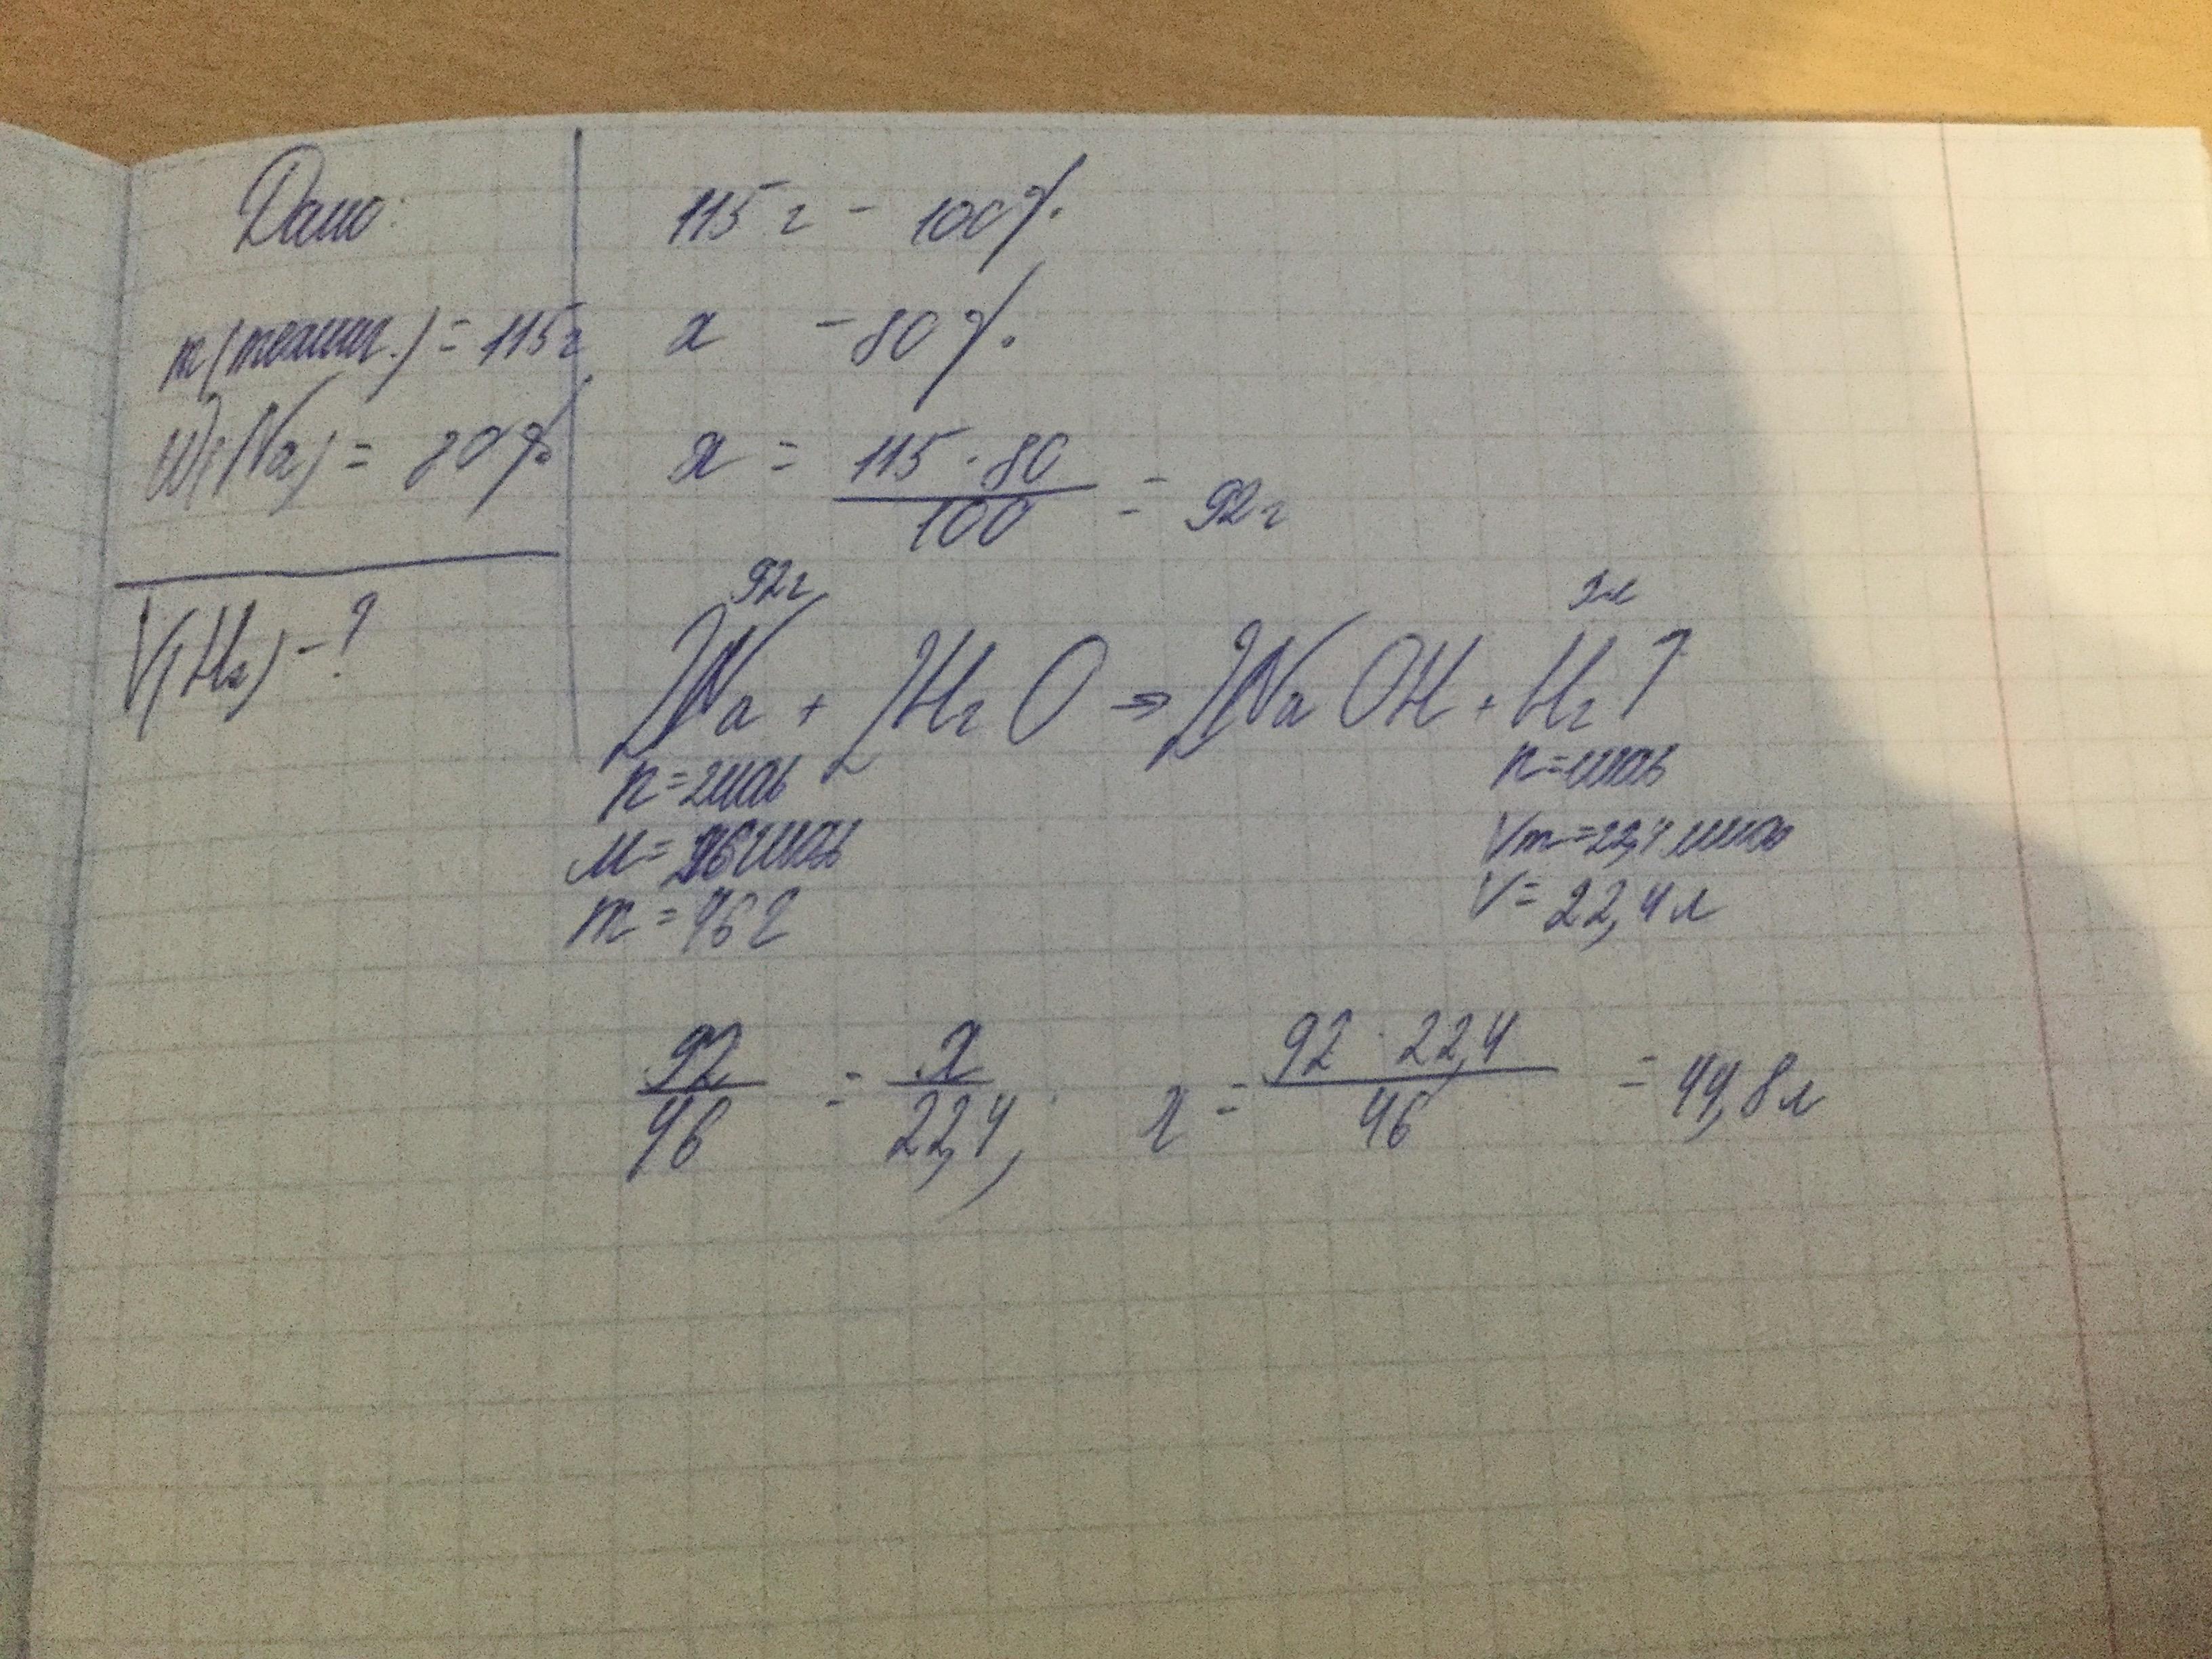 Дано:
m(технич.) = 115г
W(Na) = 80%
V(H₂) - ?
115г - 100%
x - 80%
x = 115 · 80 / 100 = 92г
92г xл
2Na + 2H₂O → 2NaOH + H₂↑
n = 2моль n = 1моль
M = Vm = 22,4 л/моль
m = 46г V = 22,4л
92/46 = x/22,4, x = 92 · 22,4 / 46 = 44,8л